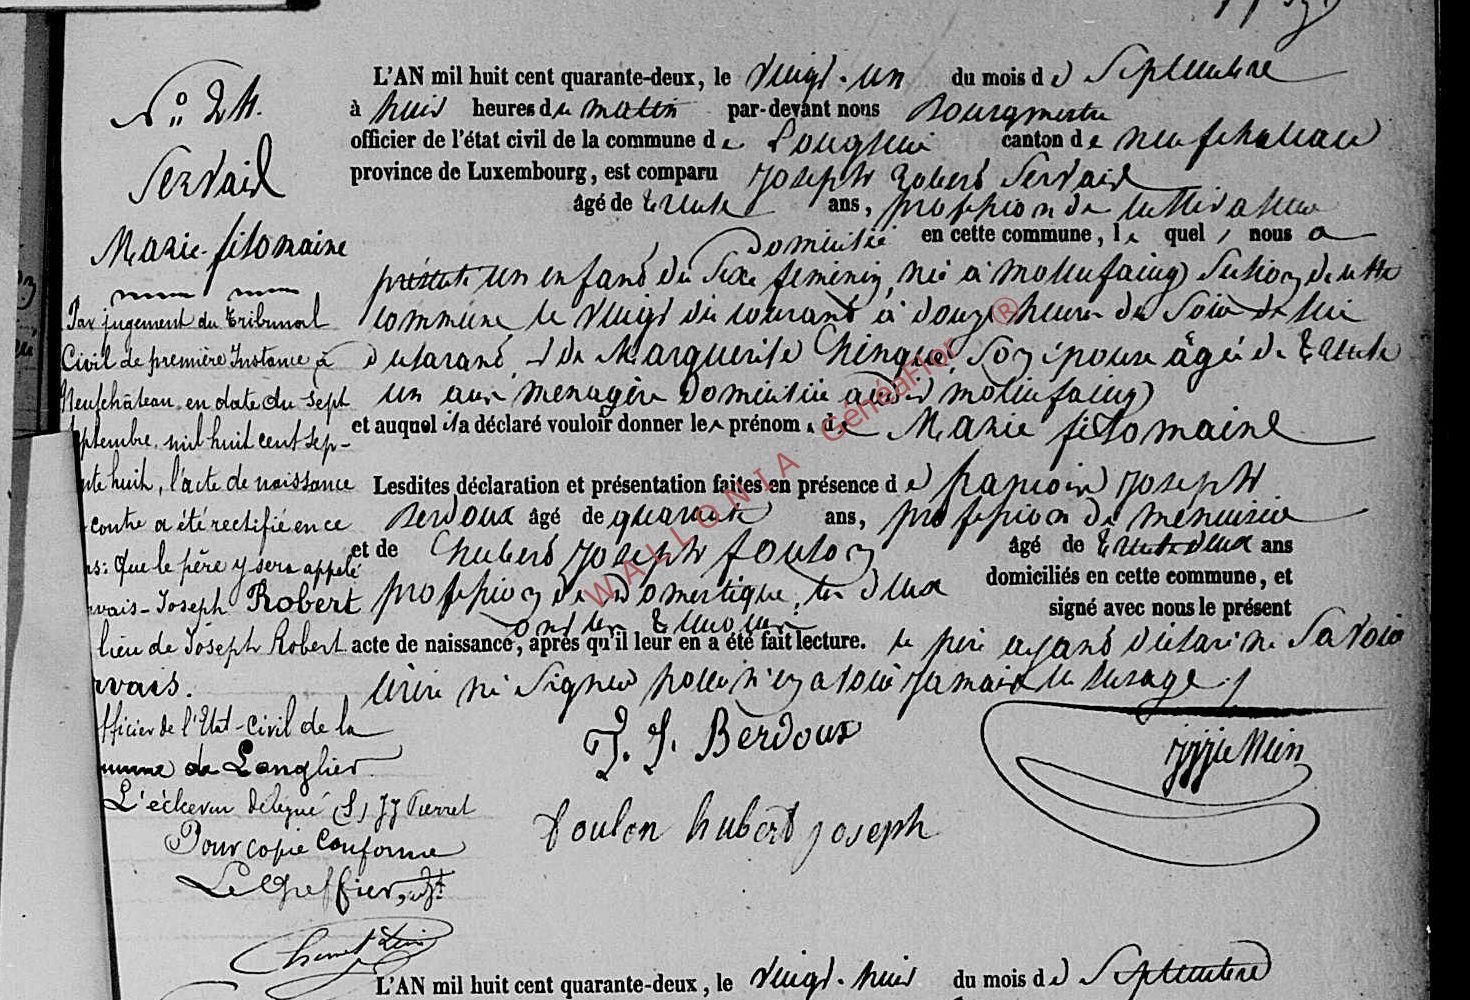 N° 24.
Servais
Marie-filomaine
Par jugement du Tribunal
Civil de première Instance à
Neufchâteau, en date du sept
septembre mil huit cent sep-
nte huit, l'acte de naissance
contre a été rectifié en ce
ns: que le père y sera appelé
rvais-Joseph Robert
lieu de Joseph Robert
rvais.
fficier de l'Etat-civil de la
mmune de Longlier.
L'échevin délégué (S) JJ Pierret
Pour copie Conforme
Le Greffier,
L'AN mil huit cent quarante-deux, le vingt-un du mois de Septembre
à huit heures du matin par-devant nous Bourgmestre
officier de l'état civil de la commune de Longlier canton de neufchateau
province de Luxembourg, est comparu Joseph Robert Servais
âgé de trente ans, profession de cultivateur
domicilié en cette commune, lequel, nous a
présenté un enfant du Sexe féminin, né à molinfaing Section de cette
commune le vingt du courant à douze heures du Soir de lui
déclarant, et de Marguerite Son épouse âgée de trente
un ans ménagère domiciliée audit molinfaing
et auquel il a déclaré vouloir donner les prénoms de Marie filomaine
Lesdites déclaration et présentation faites en présence de françois Joseph
Berdoux âgé de quarante ans, profession de menuisier
et de hubert Joseph foulon âgé de trente deux ans
profession de Domestique, les deux domiciliés en cette commune, et
ont les témoins signé avec nous le présent
acte de naissance, après qu'il leur en a été fait lecture. le père ayant déclaré ne Savoir
écrire ni Signer pour n'en avoir jamais eu l'usage.
F. J. Berdoux
foulon hubert joseph
WALLONIA GénéaFlor ®
L'AN mil huit cent quarante-deux, le vingt-huit du mois de Septembre